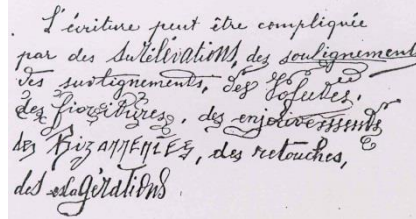 L'écriture peut être compliquée
par des surélévations, des soulignements
des surlignements, des volutes,
des fioritures, des enjolivements
des BIZARRERIES, des retouches,
des exagérations.